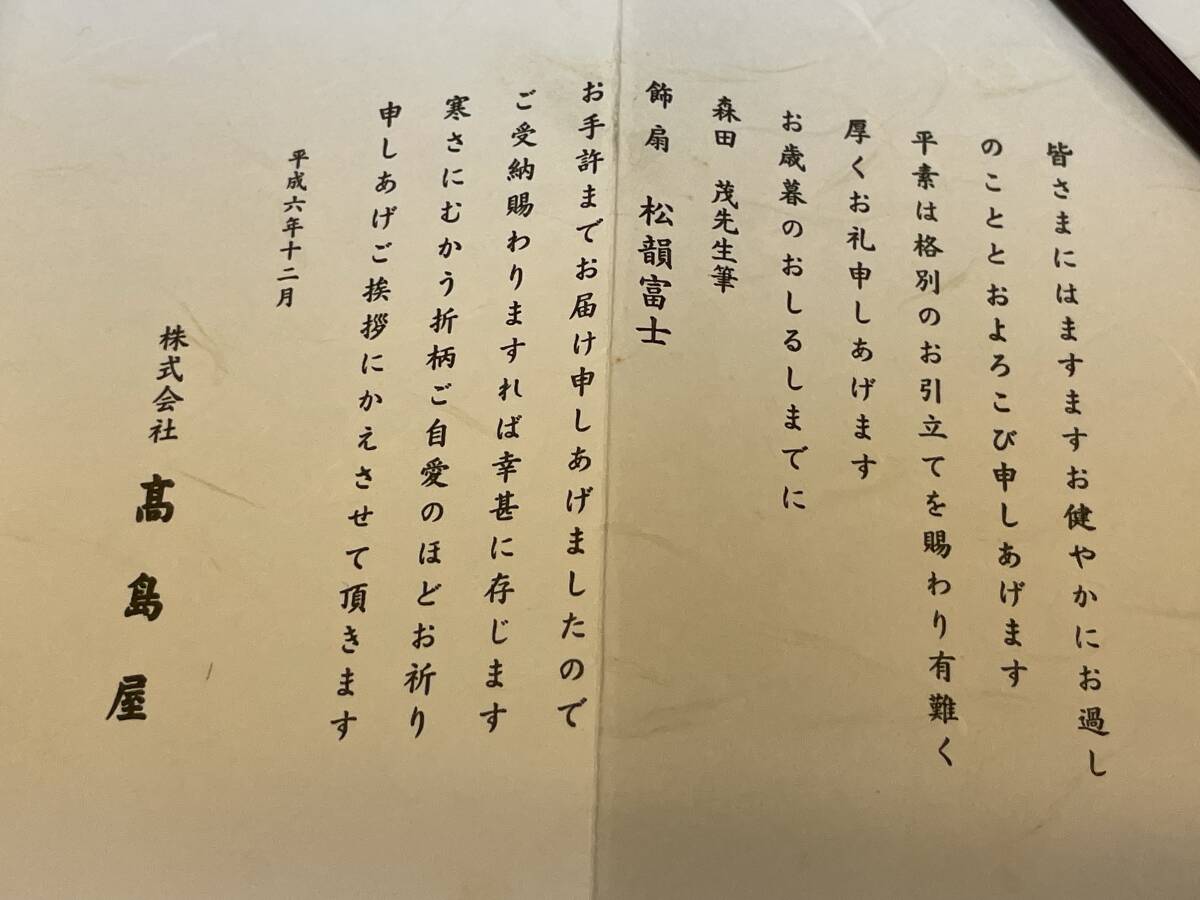 皆さまにはますますお健やかにお過し
のこととおよろこび申しあげます
平素は格別のお引立てを賜わり有難く
厚くお礼申しあげます
お歳暮のおしるしまでに
森田　茂先生筆
飾扇　松韻富士
お手許までお届け申しあげましたので
ご受納賜わりますれば幸甚に存じます
寒さにむかう折柄ご自愛のほどお祈り
申しあげご挨拶にかえさせて頂きます
平成六年十二月
株式会社　髙島屋